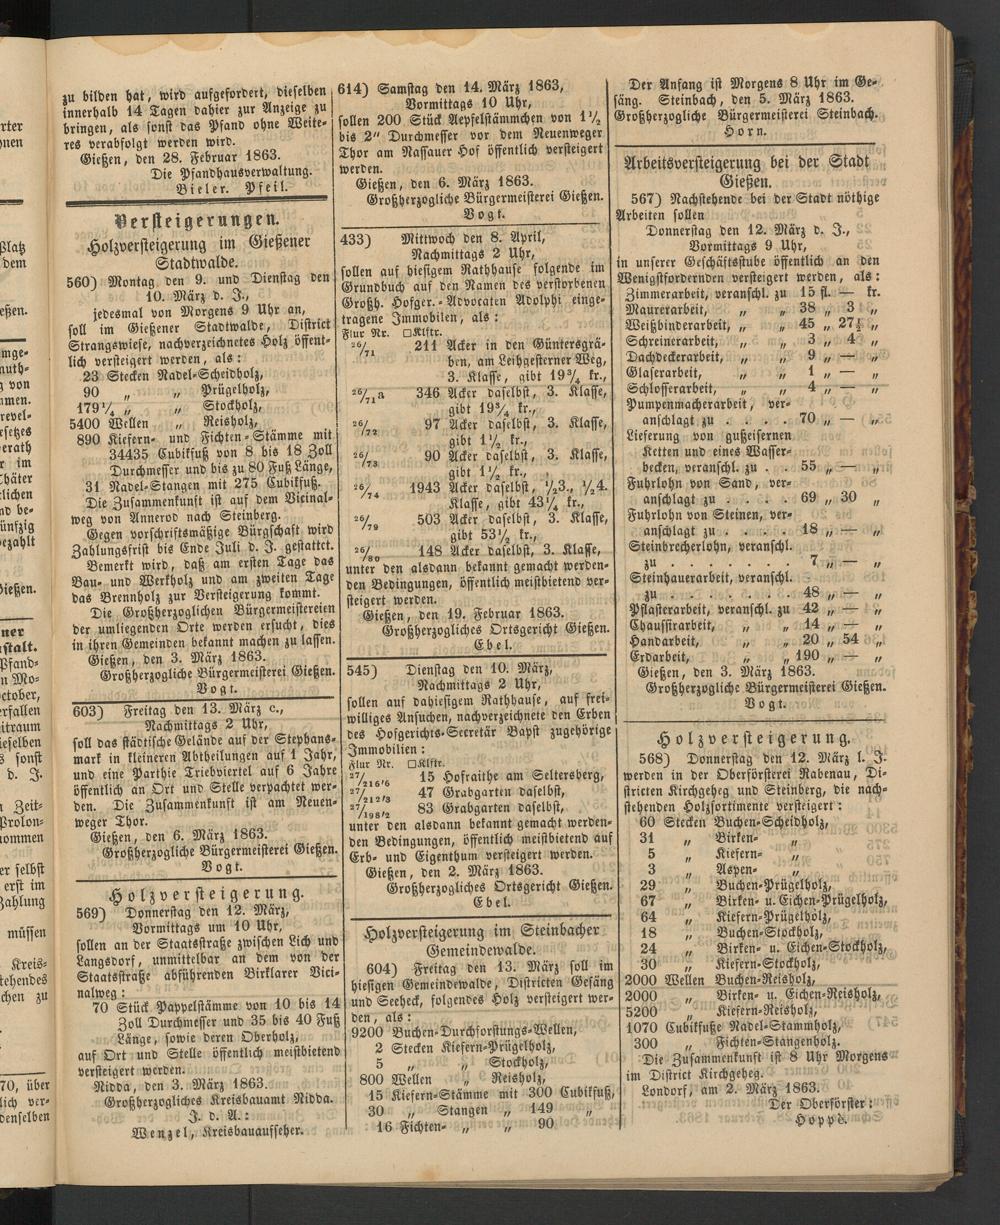 zu bilden hat, wird aufgefordert, dieselben
innerhalb 14 Tagen dahier zur Anzeige zu
bringen, als sonst das Pfand ohne Weite-
res verabfolgt werden wird.
Gießen, den 28. Februar 1863.
Die Pfandhausverwaltung.
Bieler. Pfeil.
Versteigerungen.
Holzversteigerung im Gießener
Stadtwalde.
560) Montag den 9. und Dienstag den
10. März d. J.,
jedesmal von Morgens 9 Uhr an,
soll im Gießener Stadtwalde, District
Strangswiese, nachverzeichnetes Holz öffent-
lich versteigert werden, als:
23 Stecken Nadel-Scheidholz,
90 „ „ Prügelholz,
179¼ „ „ Stockholz,
5400 Wellen „ Reisholz,
890 Kiefern- und Fichten-Stämme mit
34435 Cubikfuß von 8 bis 18 Zoll
Durchmesser und bis zu 80 Fuß Länge,
31 Nadel-Stangen mit 275 Cubikfuß.
Die Zusammenkunft ist auf dem Vicinal-
weg von Annerod nach Steinberg.
Gegen vorschriftsmäßige Bürgschaft wird
Zahlungsfrist bis Ende Juli d. J. gestattet.
Bemerkt wird, daß am ersten Tage das
Bau- und Werkholz und am zweiten Tage
das Brennholz zur Versteigerung kommt.
Die Großherzoglichen Bürgermeistereien
der umliegenden Orte werden ersucht, dies
in ihren Gemeinden bekannt machen zu lassen.
Gießen, den 3. März 1863.
Großherzogliche Bürgermeisterei Gießen.
Vogt.
603) Freitag den 13. März c.,
Nachmittags 2 Uhr,
soll das städtische Gelände auf der Stephans-
mark in kleineren Abtheilungen auf 1 Jahr,
und eine Parthie Triebviertel auf 6 Jahre
öffentlich an Ort und Stelle verpachtet wer-
den. Die Zusammenkunft ist am Neuen-
weger Thor.
Gießen, den 6. März 1863.
Großherzogliche Bürgermeisterei Gießen.
Vogt.
Holzversteigerung.
569) Donnerstag den 12. März,
Vormittags um 10 Uhr,
sollen an der Staatsstraße zwischen Lich und
Langsdorf, unmittelbar an dem von der
Staatsstraße abführenden Birklarer Vici-
nalweg:
70 Stück Pappelstämme von 10 bis 14
Zoll Durchmesser und 35 bis 40 Fuß
Länge, sowie deren Oberholz,
auf Ort und Stelle öffentlich meistbietend
versteigert werden.
Nidda, den 3. März 1863.
Großherzogliches Kreisbauamt Nidda.
J. d. A.:
Wenzel, Kreisbauaufseher.
614) Samstag den 14. März 1863,
Vormittags 10 Uhr,
sollen 200 Stück Aepfelstämmchen von 1½
bis 2" Durchmesser vor dem Neuenweger
Thor am Nassauer Hof öffentlich versteigert
werden.
Gießen, den 6. März 1863.
Großherzogliche Bürgermeisterei Gießen.
Vogt.
433) Mittwoch den 8. April,
Nachmittags 2 Uhr,
sollen auf hiesigem Rathhause folgende im
Grundbuch auf den Namen des verstorbenen
Großh. Hofger.-Advocaten Adolphi einge-
tragene Immobilien, als:
Flur Nr. □Klftr.
26/71 211 Acker in den Güntersgrä-
ben, am Leihgesterner Weg,
3. Klasse, gibt 19¾ kr.,
26/71a 346 Acker daselbst, 3. Klasse,
gibt 19¾ kr.,
26/72 97 Acker daselbst, 3. Klasse,
gibt 1½ kr.,
26/73 90 Acker daselbst, 3. Klasse,
gibt 1½ kr.,
26/74 1943 Acker daselbst, ½3., ½4.
Klasse, gibt 43¼ kr.,
26/79 503 Acker daselbst, 3. Klasse,
gibt 53½ kr.,
26/80 148 Acker daselbst, 3. Klasse,
unter den alsdann bekannt gemacht werden-
den Bedingungen, öffentlich meistbietend ver-
steigert werden.
Gießen, den 19. Februar 1863.
Großherzogliches Ortsgericht Gießen.
Ebel.
545) Dienstag den 10. März,
Nachmittags 2 Uhr,
sollen auf dahiesigem Rathhause, auf frei-
williges Ansuchen, nachverzeichnete den Erben
des Hofgerichts-Secretär Bapst zugehörige
Immobilien:
Flur Nr. □Klftr.
27/216 6/6 15 Hofraithe am Seltersberg,
27/212 2/3 47 Grabgarten daselbst,
27/198/2 83 Grabgarten daselbst,
unter den alsdann bekannt gemacht werden-
den Bedingungen, öffentlich meistbietend auf
Erb- und Eigenthum versteigert werden.
Gießen, den 2. März 1863.
Großherzogliches Ortsgericht Gießen.
Ebel.
Holzversteigerung im Steinbacher
Gemeindewalde.
604) Freitag den 13. März soll im
hiesigen Gemeindewalde, Districten Gesäng
und Seeheck, folgendes Holz versteigert wer-
den, als:
9200 Buchen-Durchforstungs-Wellen,
2 Stecken Kiefern-Prügelholz,
5 „ „ Stockholz,
800 Wellen „ Reisholz,
15 Kiefern-Stämme mit 300 Cubikfuß,
30 „ Stangen „ 149 „
16 Fichten- „ „ 90
Der Anfang ist Morgens 8 Uhr im Ge-
säng. Steinbach, den 5. März 1863.
Großherzogliche Bürgermeisterei Steinbach.
Horn.
Arbeitsversteigerung bei der Stadt
Gießen.
567) Nachstehende bei der Stadt nöthige
Arbeiten sollen
Donnerstag den 12. März d. J.,
Vormittags 9 Uhr,
in unserer Geschäftsstube öffentlich an den
Wenigstfordernden versteigert werden, als:
Zimmerarbeit, veranschl. zu 15 fl. — kr.
Maurerarbeit, „ „ 38 „ 3 „
Weißbinderarbeit, „ „ 45 „ 27½ „
Schreinerarbeit, „ „ 3 „ 4 „
Dachdeckerarbeit, „ „ 9 „ — „
Glaserarbeit, „ „ 1 „ — „
Schlosserarbeit, „ „ 4 „ — „
Pumpenmacherarbeit, ver-
anschlagt zu . . . . 70 „ — „
Lieferung von gußeisernen
Ketten und eines Wasser-
becken, veranschl. zu . . 55 „ — „
Fuhrlohn von Sand, ver-
anschlagt zu . . . . 69 „ 30 „
Fuhrlohn von Steinen, ver-
anschlagt zu . . . . 18 „ — „
Steinbrecherlohn, veranschl.
zu . . . . . . . 7 „ — „
Steinhauerarbeit, veranschl.
zu . . . . . . . 48 „ — „
Pflasterarbeit, veranschl. zu 42 „ — „
Chaussirarbeit, „ „ 14 „ — „
Handarbeit, „ „ 20 „ 54 „
Erdarbeit, „ „ 190 „ — „
Gießen, den 3. März 1863.
Großherzogliche Bürgermeisterei Gießen.
Vogt.
Holzversteigerung.
568) Donnerstag den 12. März l. J.
werden in der Oberförsterei Rabenau, Di-
stricten Kirchgeheg und Steinberg, die nach-
stehenden Holzsortimente versteigert:
60 Stecken Buchen-Scheidholz,
31 „ Birken- „
5 „ Kiefern- „
3 „ Aspen- „
29 „ Buchen-Prügelholz,
67 „ Birken- u. Eichen-Prügelholz,
64 „ Kiefern-Prügelholz,
18 „ Buchen-Stockholz,
24 „ Birken- u. Eichen-Stockholz,
30 „ Kiefern-Stockholz,
2000 Wellen Buchen-Reisholz,
2000 „ Birken- u. Eichen-Reisholz,
5200 „ Kiefern-Reisholz,
1070 Cubikfuße Nadel-Stammholz,
300 „ Fichten-Stangenholz.
Die Zusammenkunft ist 8 Uhr Morgens
im District Kirchgeheg.
Londorf, am 2. März 1863.
Der Oberförster:
Hoppe.